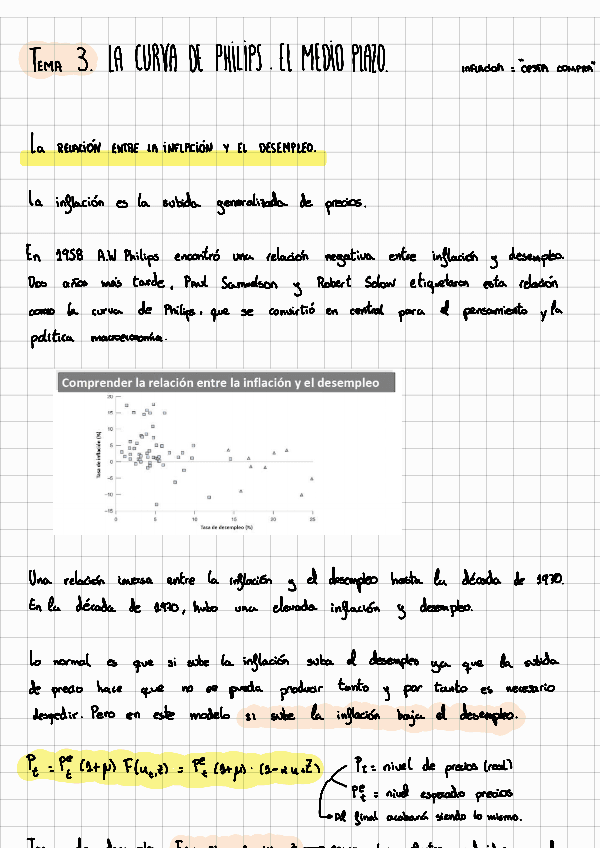 TEMA 3. LA CURVA DE PHILIPS. EL MEDIO PLAZO.
INFLACIÓN = "CESTA COMPRA"
La RELACIÓN ENTRE LA INFLACIÓN Y EL DESEMPLEO.
La inflación es la subida generalizada de precios.
En 1958 A.W Philips encontró una relación negativa entre inflación y desempleo.
Dos años más tarde, Paul Samuelson y Robert Solow etiquetaron esta relación
como la curva de Philips, que se convirtió en central para el pensamiento y la
política macroeconomía.
Comprender la relación entre la inflación y el desempleo
Tasa de inflación (%)
20
15
10
5
0
−5
−10
−15
0 5 10 15 20 25
Tasa de desempleo (%)
Una relación inversa entre la inflación y el desempleo hasta la década de 1970.
En la década de 1970, hubo una elevada inflación y desempleo.
Lo normal es que si sube la inflación suba el desempleo ya que la subida
de precio hace que no se pueda producir tanto y por tanto es necesario
despedir. Pero en este modelo si sube la inflación baja el desempleo.
Pt = Pᵉt (1+μ) F(ut,z) = Pᵉt (1+μ) · (1-αut+Z)
Pt = nivel de precios (real)
Pᵉt = nivel esperado precios
Al final acabará siendo lo mismo.